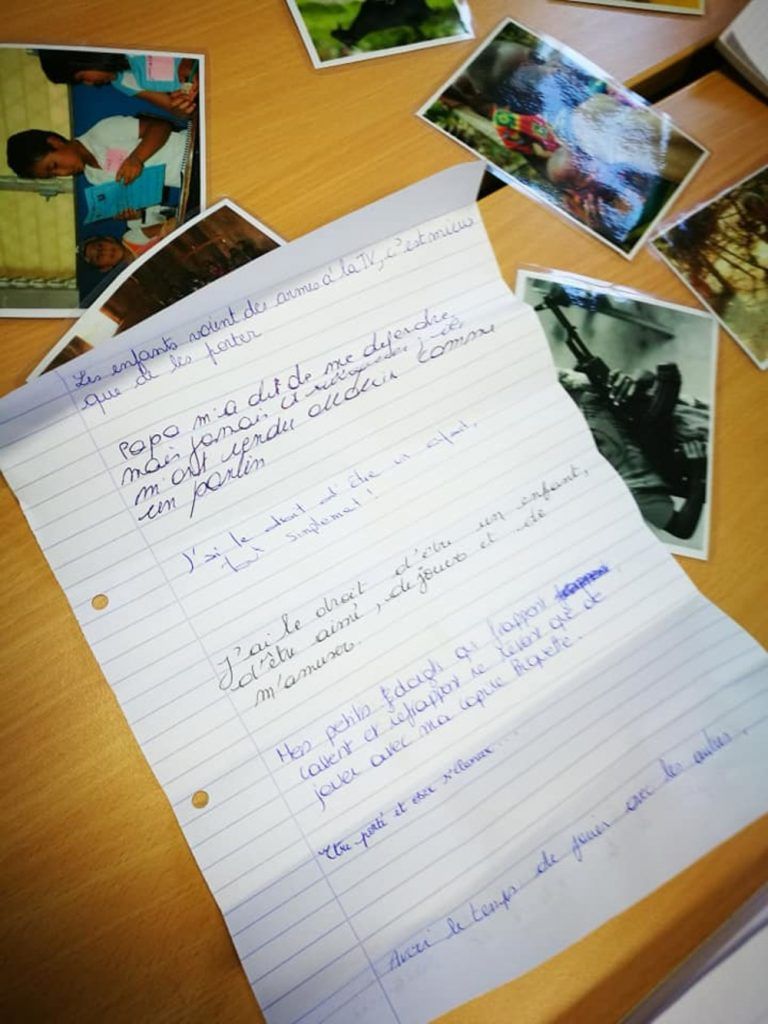 Les enfants voient des armes à la TV, c'est mieux
que de les porter
Papa m'a dit de me défendre
mais jamais
m'ont rendu comme
un pantin
J'ai le droit d'être un enfant,
tout simplement !
J'ai le droit d'être un enfant,
d'être aimé, de jouer et de
m'amuser.
Mes petits doigts qui frappent
cassent et refrappent rêvent que de
jouer avec ma copine
Être porté et oser s'élancer...
Avoir le temps de jouer avec les autres.